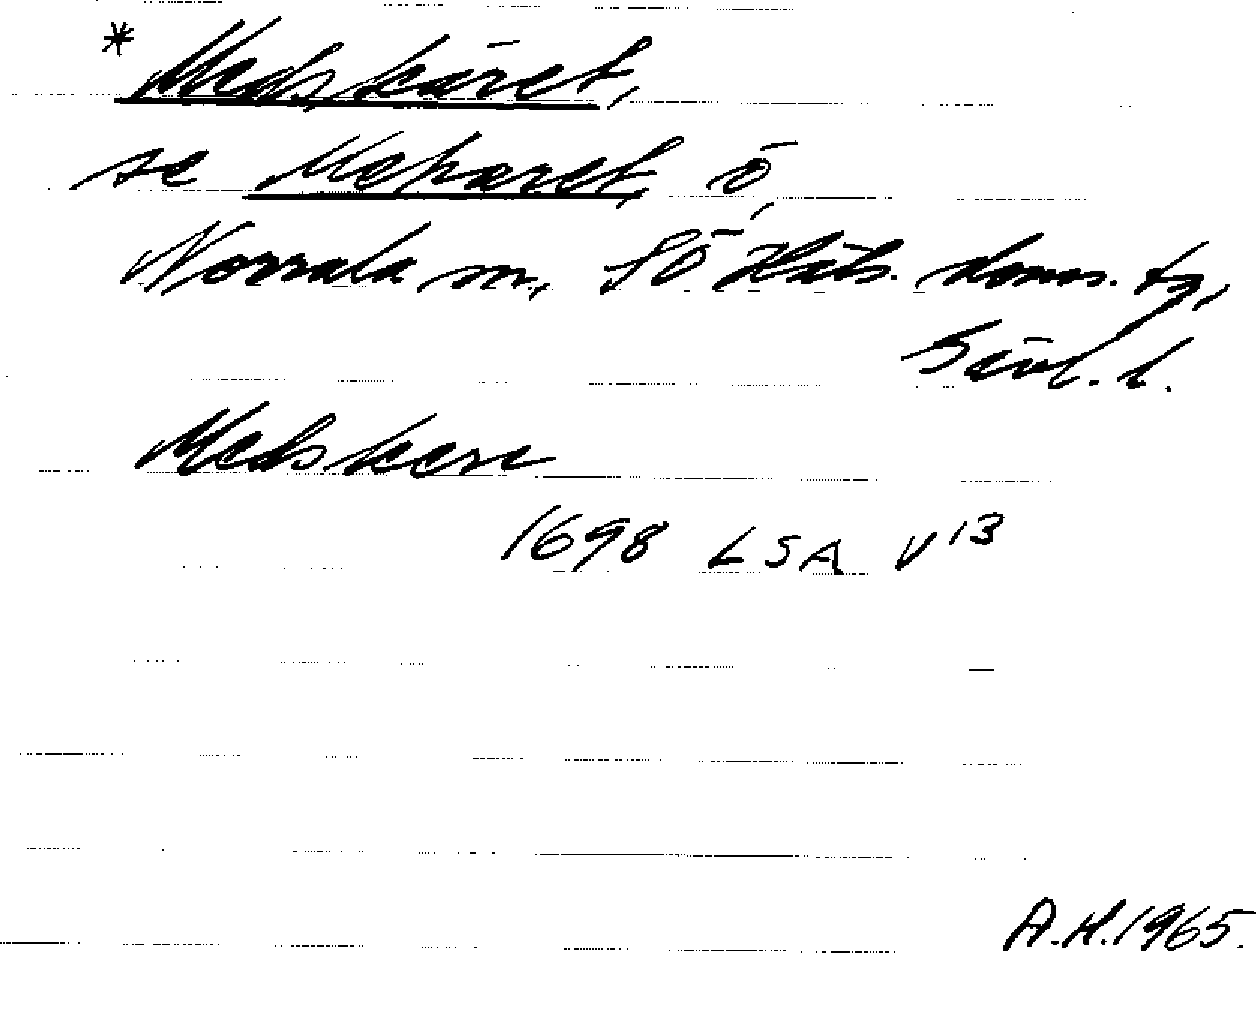 * Medskäret,
se Meharet, ö,
Norrala sn, SÖ Häls. doms. tg,
Gävl. l.
Medskere
1698 LSA V 13
A.H. 1965.